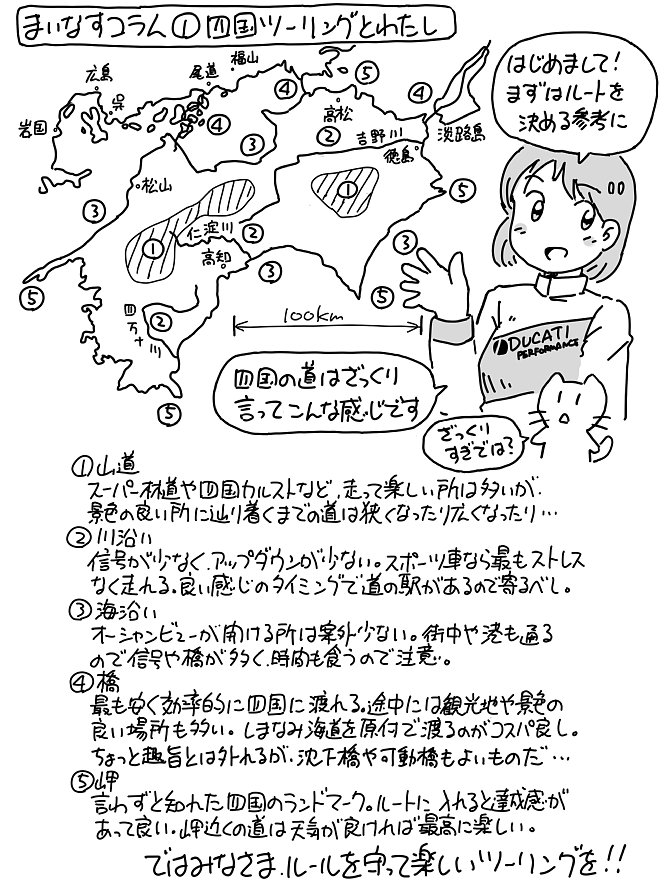 まいなすコラム① 四国ツーリングとわたし
はじめまして!
まずはルートを
決める参考に
広島
呉
岩国
尾道
福山
⑤
④
④
④
高松
②
吉野川
徳島
淡路島
③
松山
③
①
①
⑤
仁淀川
②
高知
③
③
⑤
⑤
四万十川
②
⑤
100km
DUCATI
PERFORMANCE
四国の道はざっくり
言ってこんな感じです
ざっくり
すぎでは?
①山道
スーパー林道や四国カルストなど、走って楽しい所は多いが、
景色の良い所に辿り着くまでの道は狭くなったり広くなったり…
②川沿い
信号が少なく、アップダウンが少ない。スポーツ車なら最もストレス
なく走れる。良い感じのタイミングで道の駅があるので寄るべし。
③海沿い
オーシャンビューが開ける所は案外少ない。街中や港も通る
ので信号や橋が多く、時間も食うので注意。
④橋
最も安く効率的に四国に渡れる。途中には観光地や景色の
良い場所も多い。しまなみ海道を原付で渡るのがコスパ良し。
ちょっと趣旨とは外れるが、沈下橋や可動橋もよいものだ…
⑤岬
言わずと知れた四国のランドマーク。ルートに入れると達成感が
あって良い。岬近くの道は天気が良ければ最高に楽しい。
ではみなさま、ルールを守って楽しいツーリングを!!